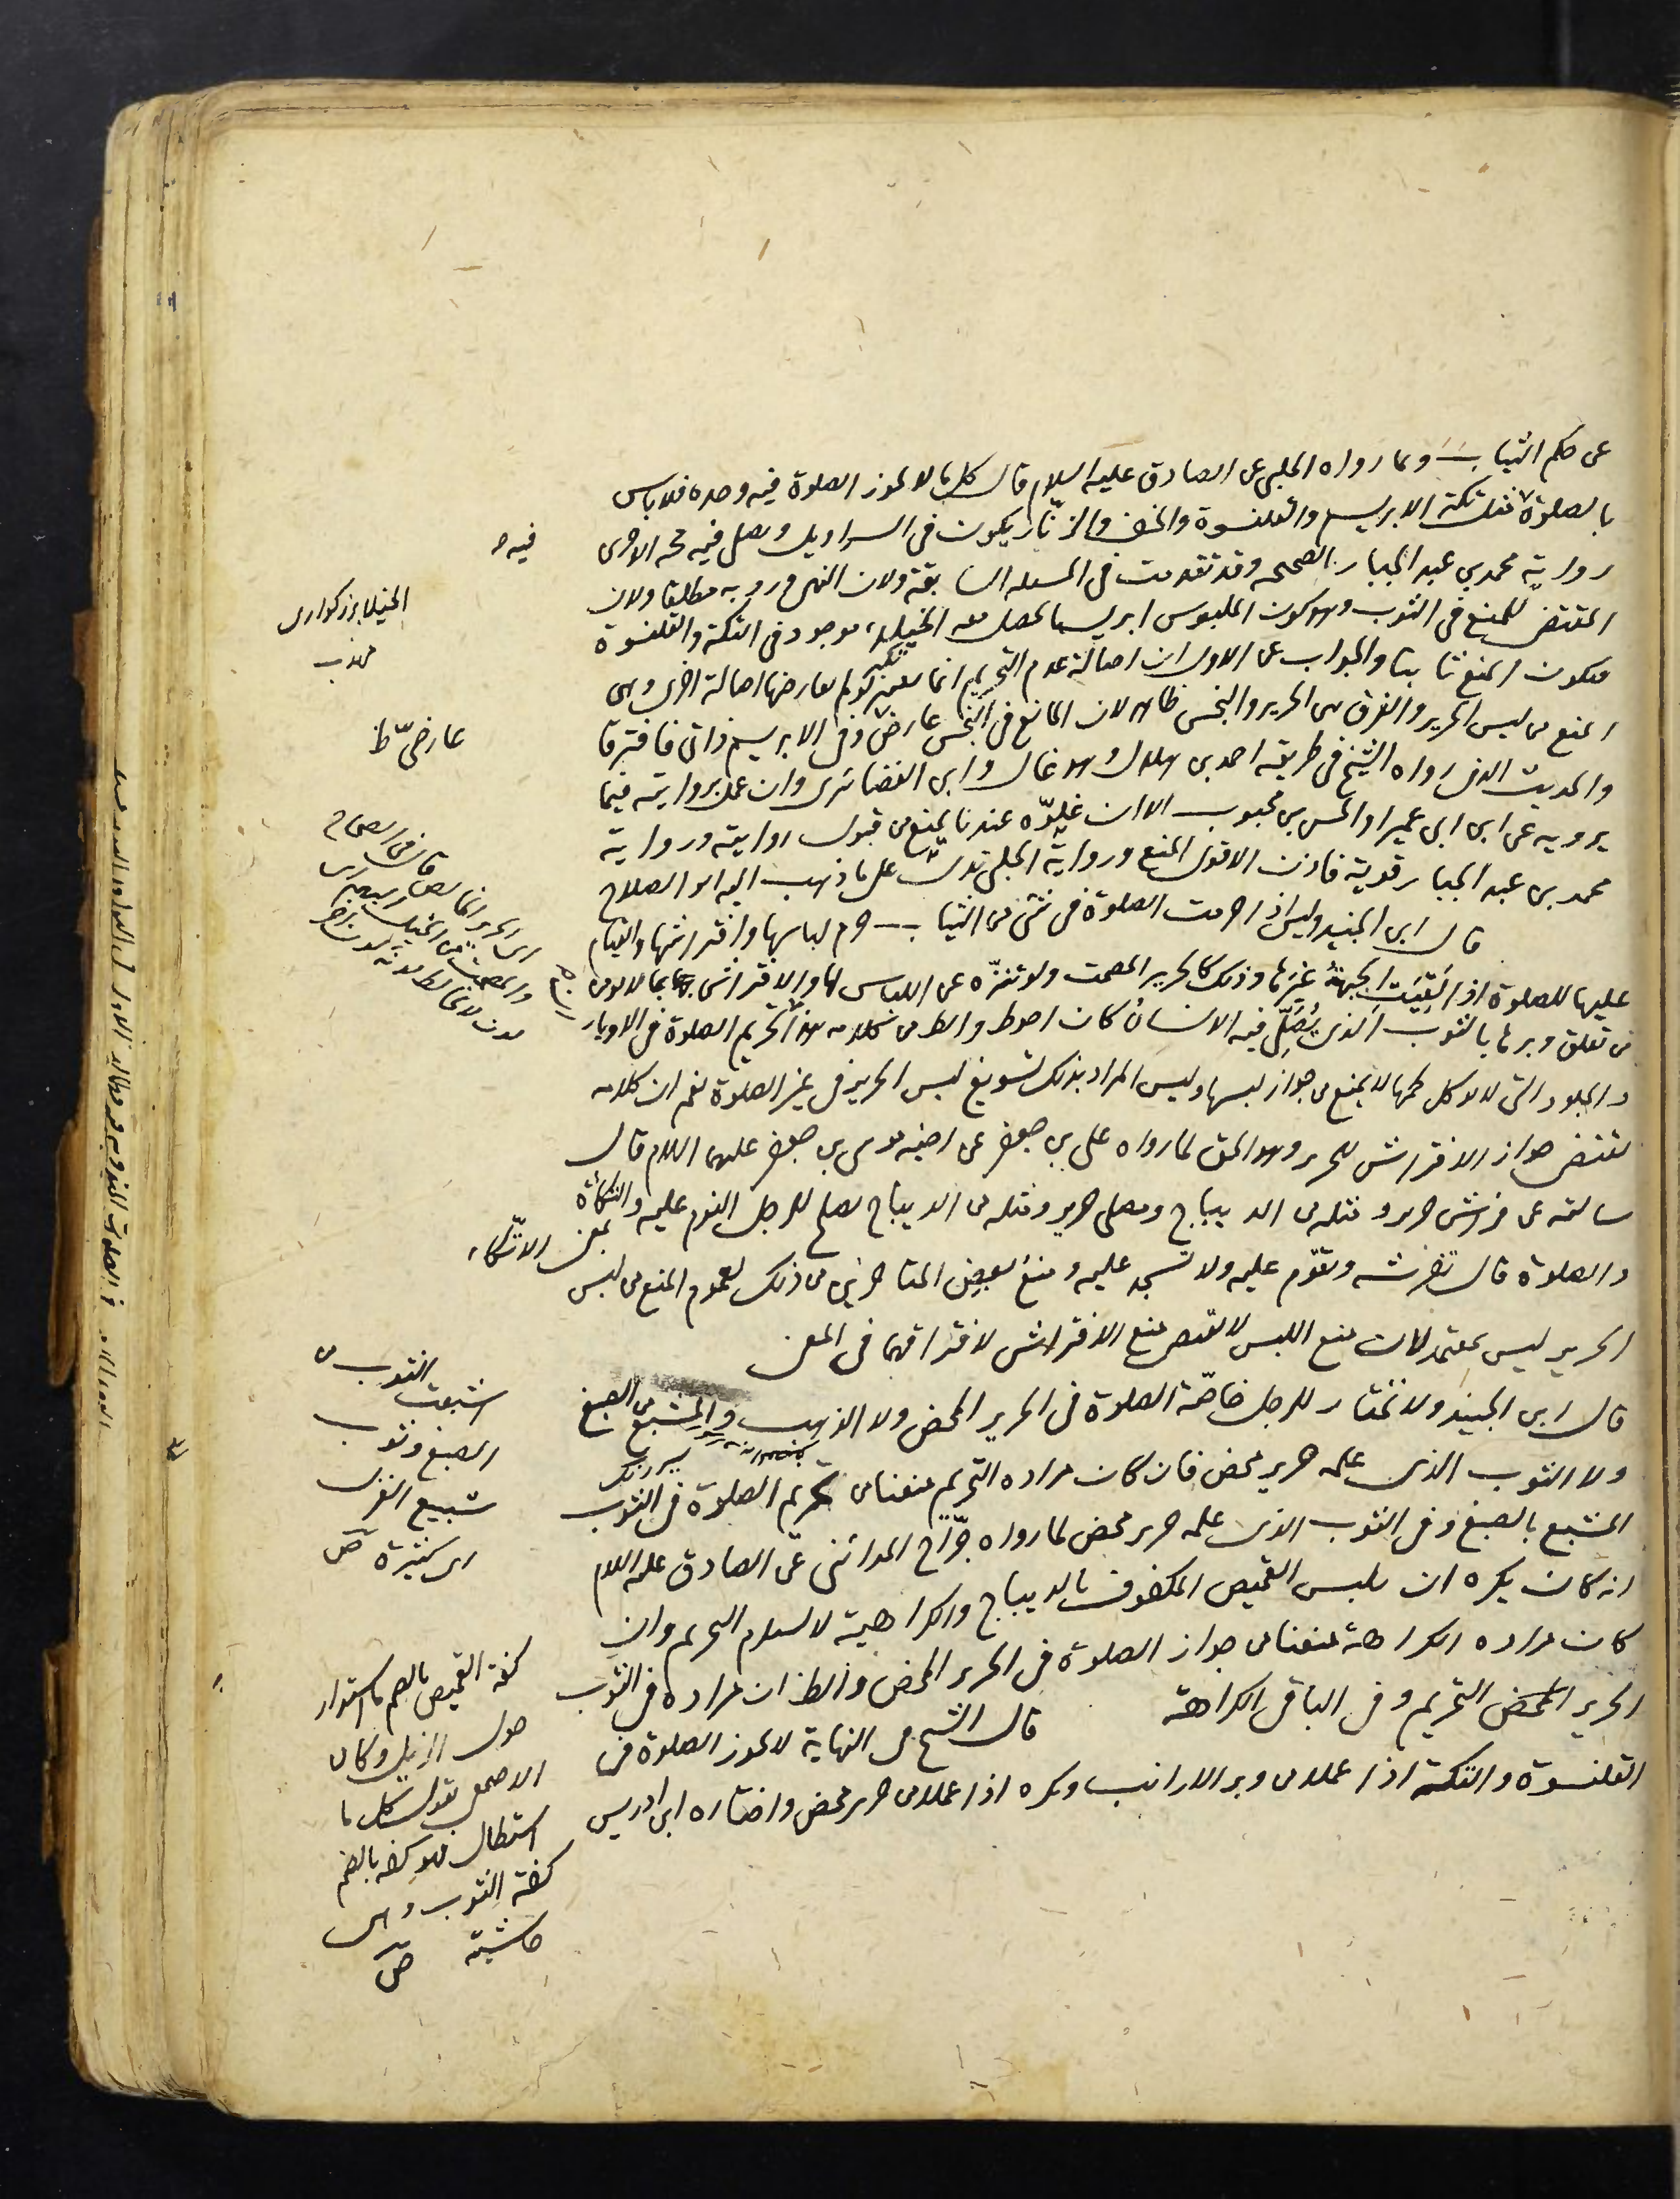 عن حكم الثياب وبما رواه الحلبي عن الصادق عليه السلام قال كل ما لا تجوز الصلوة فيه وحده فلا باس
بالصلوة فيه مثل تكة الابريسم والقلنسوة والخف والزنار يكون في السراويل ويصلى فيه حجة الاخرى
رواية محمد بن عبد الجبار الصحيحة وقد تقدمت في المسئلة السابقة ولان النهي ورد به مطلقا ولان
المقتضي للمنع في الثوب وهو كون الملبوس ابريسما تحصل معه الخيلاء موجود في التكة والقلنسوة
فيكون المنع ثابتا والجواب عن الاول ان اصالة عدم التحريم انما يعتبر لو لم يعارضها اصالة اخرى وهي
المنع من لبس الحرير والفرق بين الحرير والنجس ظاهر لان المانع في النجس عارضي وفي الابريسم ذاتي فافترقا
والحديث الذي رواه الشيخ في طريقه احمد بن هلال وهو غال وابن الغضائري وان عمل بروايته فيما
يرويه عن ابن ابي عمير او الحسن بن محبوب الا ان غلوه عندنا يمنع من قبول روايته ورواية
محمد بن عبد الجبار قوية فاذن الاقوى المنع ورواية الحلبي تدل على ما ذهب اليه ابو الصلاح
قال ابن الجنيد وليس اذا حرمت الصلوة في شئ من الثياب حرم لباسها وافتراشها والقيام
عليها للصلوة اذا لقيت الجبهة غيرها وذلك كالحرير المصمت ولو تنزه عن اللباس لها والافتراش بما لا يؤمن
من تعلق وبرها بالثوب الذي يصلي فيه الانسان كان احوط والظ من كلامه هذا تحريم الصلوة في الاوبار
والجلود التي لا يوكل لحمها لا يمنع من جواز لبسها وليس المراد بذلك تسويغ لبس الحرير في غير الصلوة نعم ان كلامه
يقتضي جواز الافتراش للحرير وهو الحق لما رواه علي بن جعفر عن اخيه موسى بن جعفر عليهما السلام قال
سالته عن فرش حرير ومثله من الديباج ومصلى حرير ومثله من الديباج يصلح للرجل النوم عليه والتكأة
والصلوة قال تفرشه وتقوم عليه ولا تسجد عليه ومنع بعض المتاخرين من ذلك لعموم المنع من لبس
الحرير ليس بمعتمد لان منع اللبس لا يقتضي منع الافتراش لافتراقهما في المعنى
قال ابن الجنيد ولا نختار للرجل خاصة الصلوة في الحرير المحض ولا الذهب والمشبع من الصبغ
ولا الثوب الذي علمه حرير محض فان كان مراده التحريم منعنا من تحريم الصلوة في الثوب
المشبع بالصبغ وفي الثوب الذي علمه حرير محض لما رواه جراح المدائني عن الصادق عليه السلام
انه كان يكره ان يلبس القميص المكفوف بالديباج والكراهية لا يستلزم التحريم وان
كان مراده الكراهة منعنا من جواز الصلوة في الحرير المحض والظ ان مراده في الثوب
الحرير المحض التحريم وفي الباقي الكراهة قال الشيخ في النهاية لا تجوز الصلوة في
القلنسوة والتكة اذا عملا من وبر الارانب ويكره اذا عملا من حرير محض واختاره ابن ادريس
فيه
عارضي ظ
قال في الصحاح
بمعنى الاتكاء
اشبعت الثوب من
الصبغ وثوب
شبيع الغزل
اي كثيرة ص
كفة القميص بالضم ما استدار
حول الذيل وكان
الاصمعي يقول كل ما
استطال فهو كفة بالضم
كفة الثوب وهي
حاشيته ص